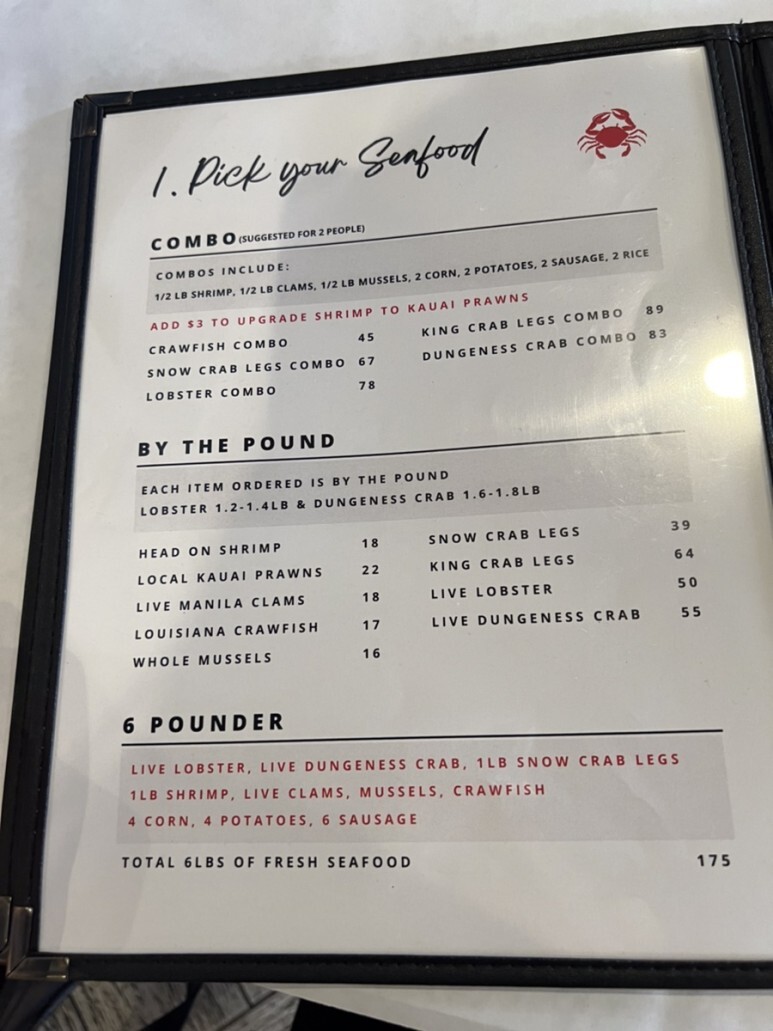 1. Pick your Seafood
COMBO (SUGGESTED FOR 2 PEOPLE)
COMBOS INCLUDE:
1/2 LB SHRIMP, 1/2 LB CLAMS, 1/2 LB MUSSELS, 2 CORN, 2 POTATOES, 2 SAUSAGE, 2 RICE
ADD $3 TO UPGRADE SHRIMP TO KAUAI PRAWNS
CRAWFISH COMBO 45
SNOW CRAB LEGS COMBO 67
LOBSTER COMBO 78
KING CRAB LEGS COMBO 89
DUNGENESS CRAB COMBO 83
BY THE POUND
EACH ITEM ORDERED IS BY THE POUND
LOBSTER 1.2-1.4LB & DUNGENESS CRAB 1.6-1.8LB
HEAD ON SHRIMP 18
LOCAL KAUAI PRAWNS 22
LIVE MANILA CLAMS 18
LOUISIANA CRAWFISH 17
WHOLE MUSSELS 16
SNOW CRAB LEGS 39
KING CRAB LEGS 64
LIVE LOBSTER 50
LIVE DUNGENESS CRAB 55
6 POUNDER
LIVE LOBSTER, LIVE DUNGENESS CRAB, 1LB SNOW CRAB LEGS
1LB SHRIMP, LIVE CLAMS, MUSSELS, CRAWFISH
4 CORN, 4 POTATOES, 6 SAUSAGE
TOTAL 6LBS OF FRESH SEAFOOD 175